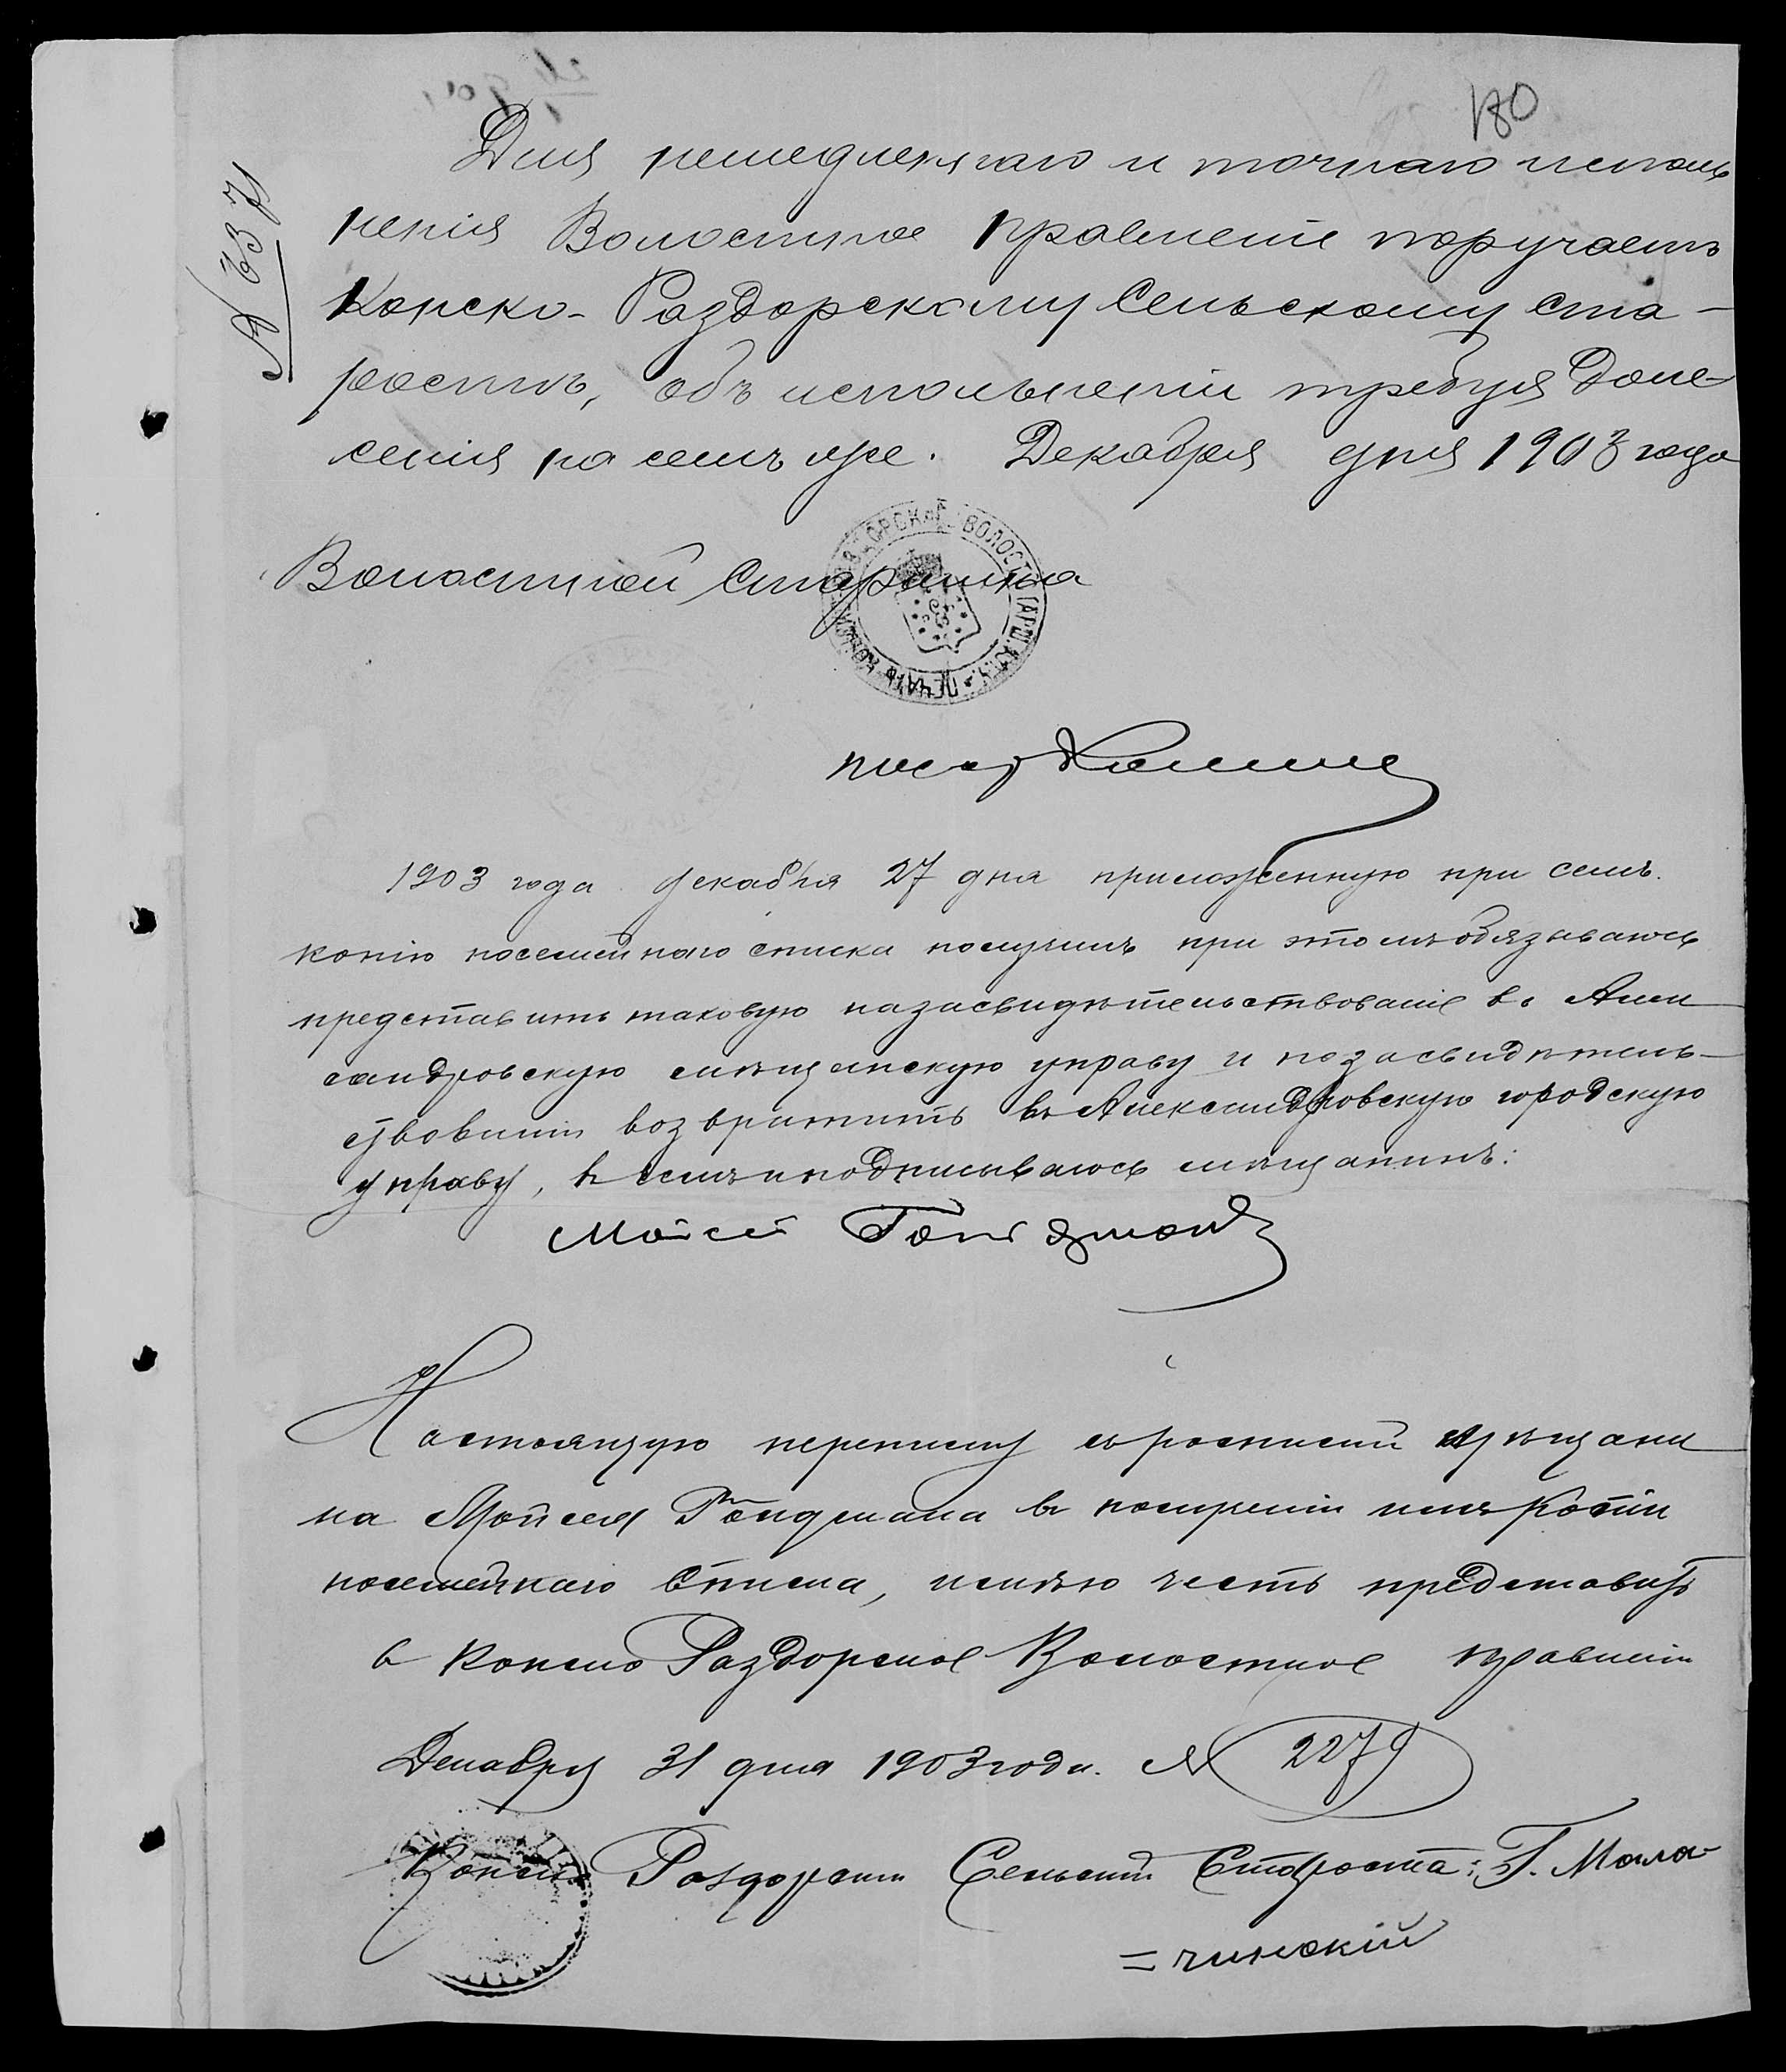 180
Для немедленнаго и точнаго испол
ненія Волостное правленіе поручаетъ
Конско-Раздорскому Сельскому Ста-
ростѣ, объ исполненіи требуя доне
сенія на семъ же. Декабря дня 1903 года
Волостной Старшина
писарь
1903 года декабря 27 дня приложенную при семъ
копію посемейнаго списка получилъ при этомъ обязываюсь
представить таковую на засвидѣтельствованіе въ Алек
сандровскую мѣщанскую управу и по засвидѣтель-
ствованіи возвратить въ Александровскую городскую
управу, въ чемъ и подписываюсь мѣщанинъ:
Мойсей
Настоящую переписку съ роспиской мѣщани
на Мойсея Гондмана въ полученіи имъ копіи
посемейнаго Списка, имѣю честь представить
в Конско Раздорское Волостное правленіе
Декабря 31 дня 1903 года. № 2279
Конско Раздорскій Сельскій Староста: Г. Мала
=чинскій